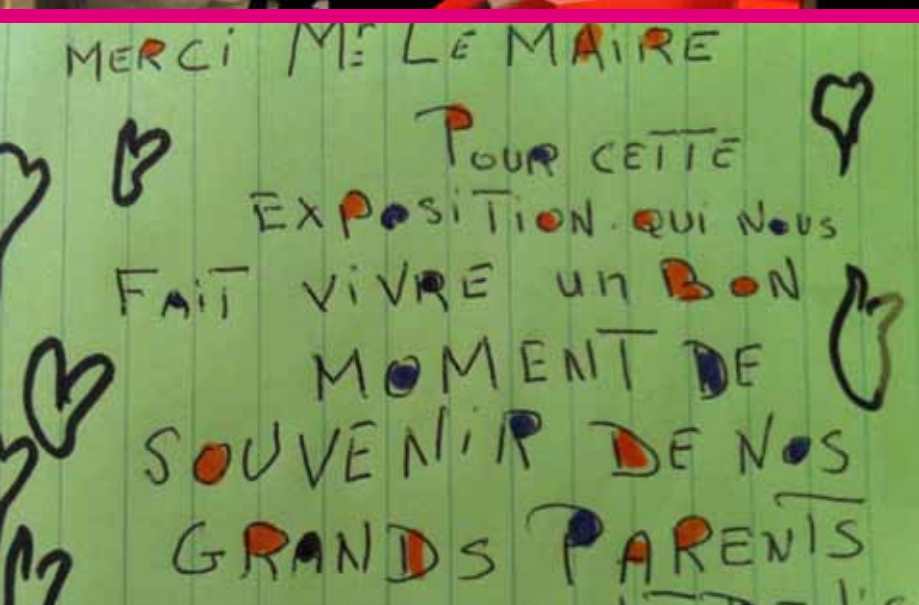 MERCi ME LE MAiRE
POUR CETTE
EXPOSiTiON QUi NOUS
FAiT ViVRE un BON
MOMENT DE
SOUVENiR DE NOS
GRANDS PARENTS